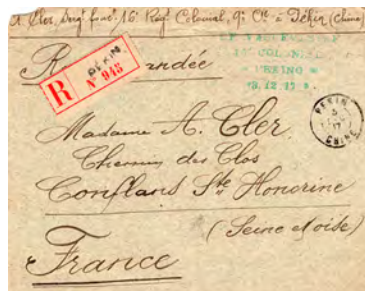 A. Cler, Sergt fonc. 16e Régt Colonial, 9e Cie à Pékin (Chine)
16e COLONIAL
PEKING
Recommandée
PÉKIN
R N° 943
PEKIN
CHINE
Madame A. Cler
Chemin des Clos
Conflans Ste Honorine
(Seine et oise)
France